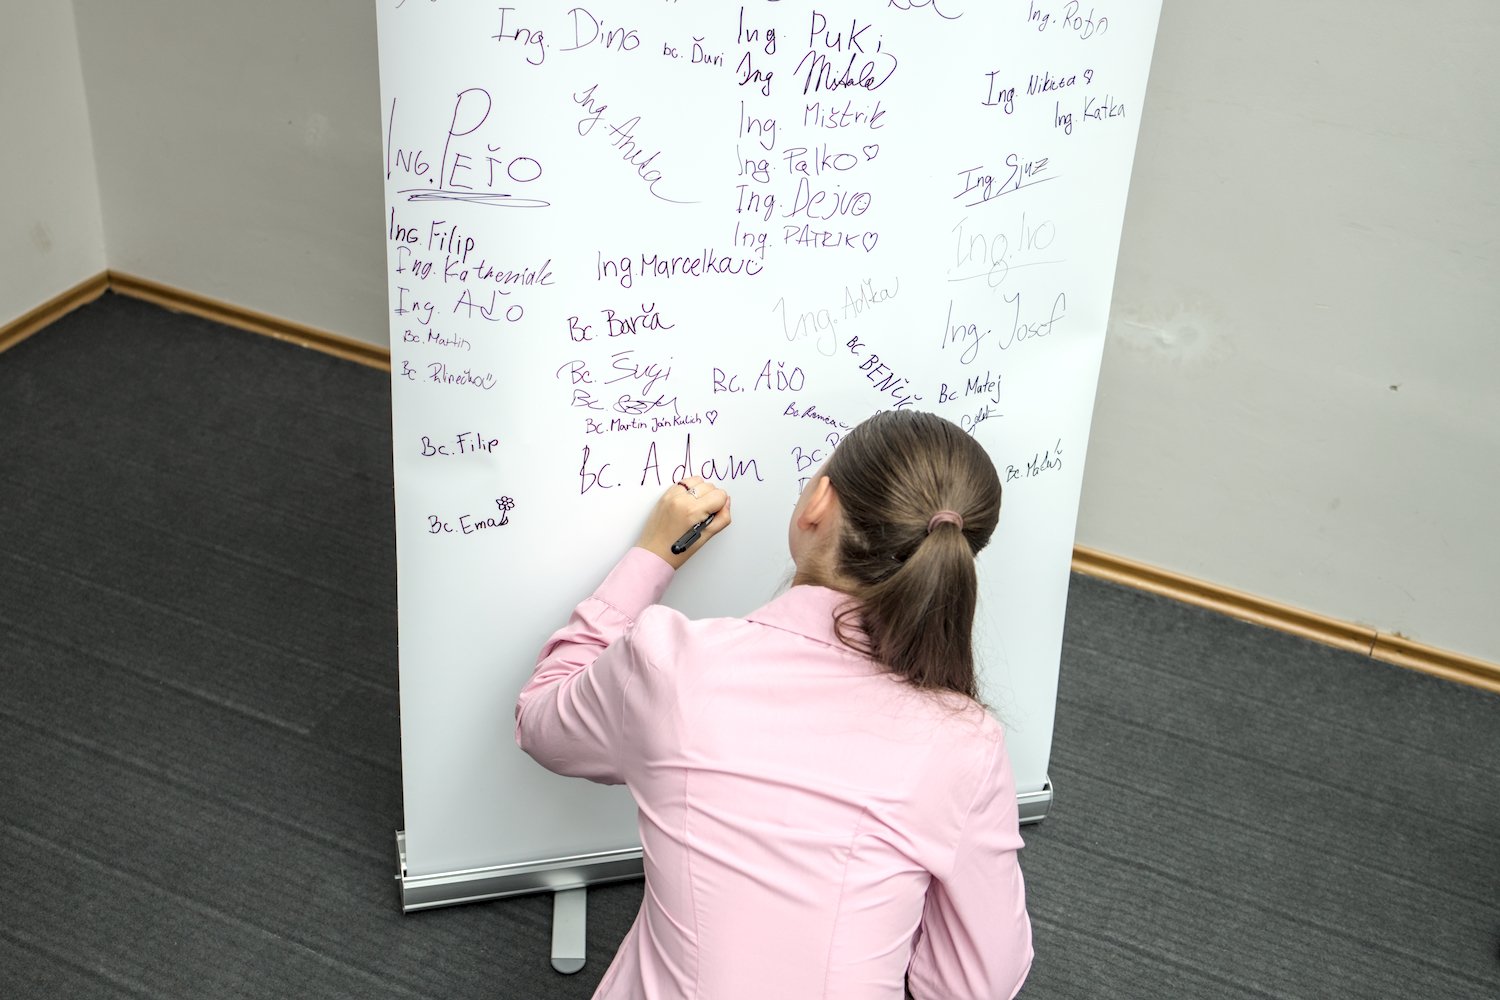 Ing. Dino
Bc. Ďuri
Ing. Puki
Ing
Ing. Mištrik
Ing. Palko ♡
Ing. Dejvo
Ing. PATRIK ♡
Ing. Robo
Ing. Nikisa ♡
Ing. Katka
Ing. Sjuz
Ing. Ivo
Ing. Josef
Ing. Aneta
ING. PEŤO
Ing. Filip
Ing.
Ing. Aďo
Bc. Martin
Bc.
Bc. Filip
Bc. Ema
Ing. Marcelka
Bc. Barča
Bc. Šugi
Bc.
Bc. Martin Ján Kulich ♡
Bc. Adam
Bc. AĎO
Ing. Adka
Bc. BENČIČ
Bc.
Bc.
Bc. Matej
Bc. Matúš